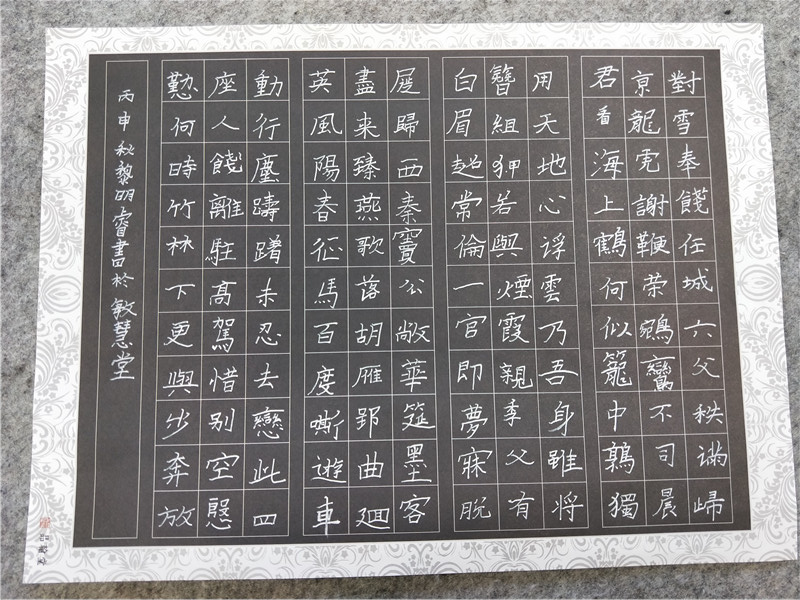 對雪奉餞任城六父秩滿歸
京龍虎謝鞭策鵷鸞不司晨
君看海上鶴何似籠中鶉獨
用天地心浮雲乃吾身雖将
簪組狎若與煙霞親季父有
白眉超常倫一官即夢寐脫
屣歸西秦竇公敞華筵墨客
盡来臻燕歌落胡雁郢曲迴
英風陽春征馬百度嘶遊車
動行塵躊躇未忍去戀此四
座人餞離駐高駕惜别空慇
懃何時竹林下更與步奔放
丙申秋黎明睿書於敏慧堂